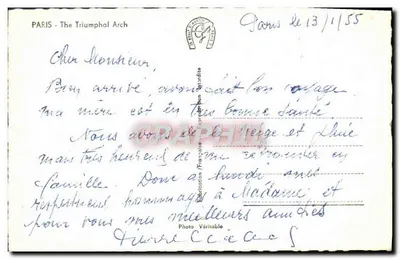 PARIS - The Triumphal Arch
Paris le 13/1/55
Cher Monsieur,
Bien arrivé, avons fait bon voyage
ma mère est en très bonne santé.
Nous avons de la neige et pluie
mais très heureux de me retrouver en
famille. Donc à lundi mes
respectueux hommages à Madame et
pour vous mes meilleurs amitiés
Pierre
Photo Véritable